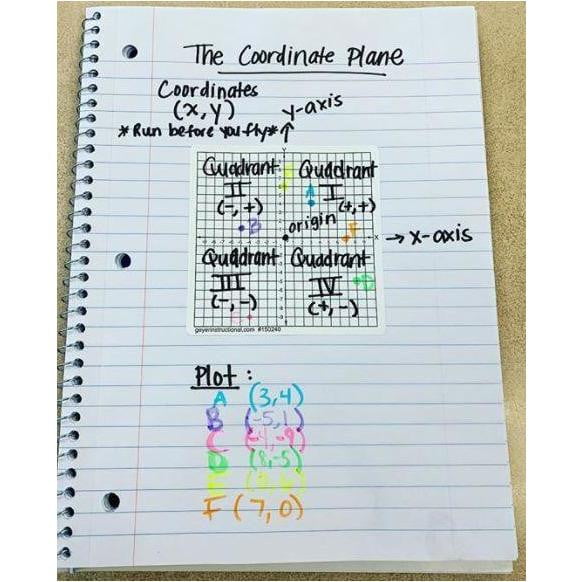 The Coordinate Plane
Coordinates
(x,y)
y-axis
*Run before you fly*
Quadrant II (-,+)
Quadrant I (+,+)
A
B
origin
F
x-axis
Quadrant III (-,-)
Quadrant IV (+,-)
D
geyerinstructional.com #150240
Plot:
A (3,4)
B (-5,1)
C (-4,-9)
D (8,-5)
E
F (7,0)